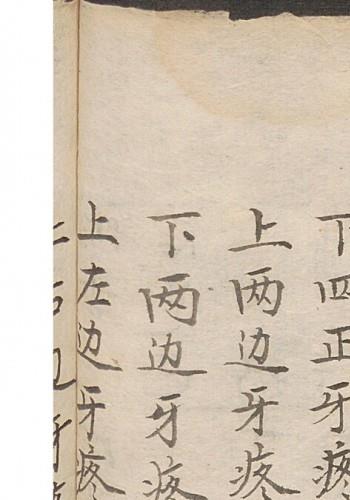 下四正牙疼
上两边牙疼
下两边牙疼
上左边牙疼
右边牙